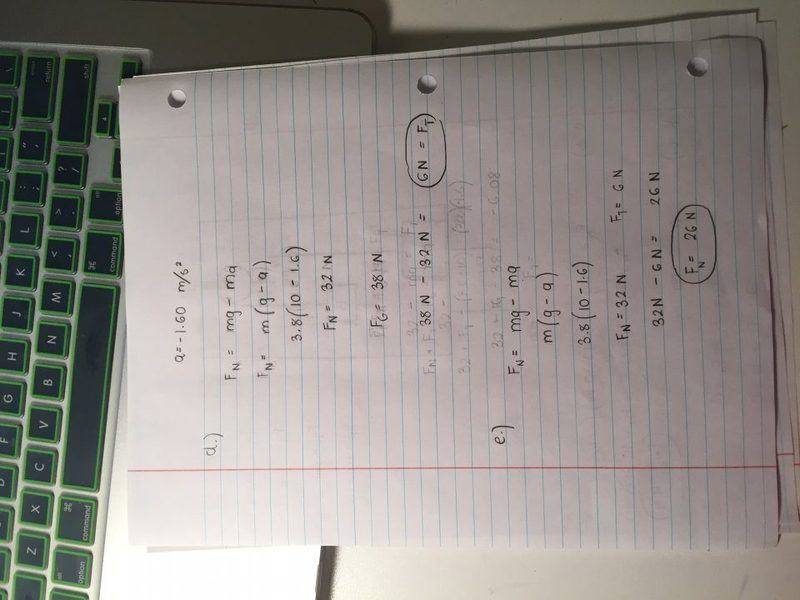 a = -1.60 m/s²
d.)
F_N = mg - ma
F_N = m(g - a)
3.8(10 - 1.6)
F_N = 32 N
F_G = 38 N
38 N - 32 N = 6N = F_T
e.)
F_N = mg - ma
m(g - a)
3.8(10 - 1.6)
F_N = 32 N F_T = 6 N
32N - 6N = 26 N
F_N = 26 N
return
shift
option
command
command
option
\
"
'
:
;
?
/
>
.
<
,
L
K
J
H
G
F
D
M
N
B
V
C
X
Z